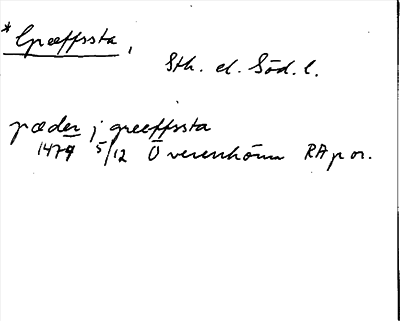 * Greeffssta,
Sth. el. Söd. l.
pæder j greeffssta
1474 5/12 Överenhörna RAp or.